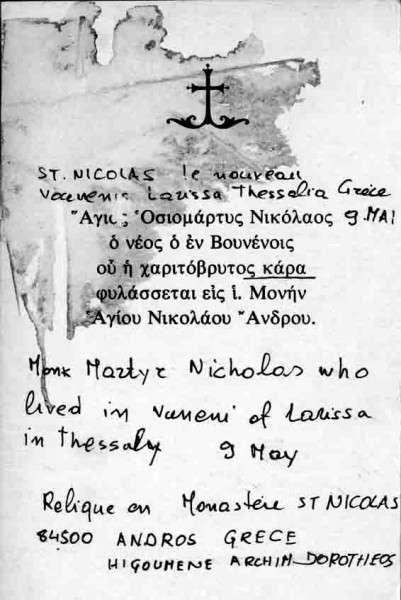 ST. NICOLAS le nouveau
Vounenis Larissa Thessalia Grèce
Ἅγιος Ὁσιομάρτυς Νικόλαος 9 MAI
ὁ νέος ὁ ἐν Βουνένοις
οὗ ἡ χαριτόβρυτος κάρα
φυλάσσεται εἰς ἱ. Μονήν
Ἁγίου Νικολάου Ἄνδρου.
Monk Martyr Nicholas who
lived in Vuneni of Larissa
in Thessaly 9 May
Relique en Monastère ST NICOLAS
84500 ANDROS GRECE
HIGOUMENE ARCHIM-DOROTHEOS